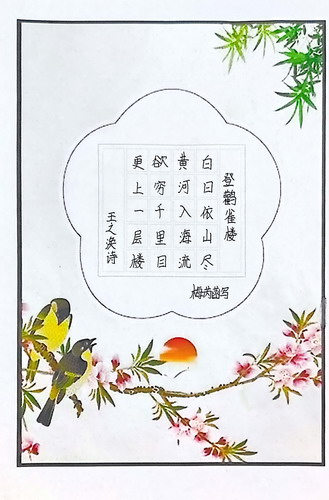 登鹳雀楼
白日依山尽
黄河入海流
欲穷千里目
更上一层楼
王之涣诗
梅芮菡写